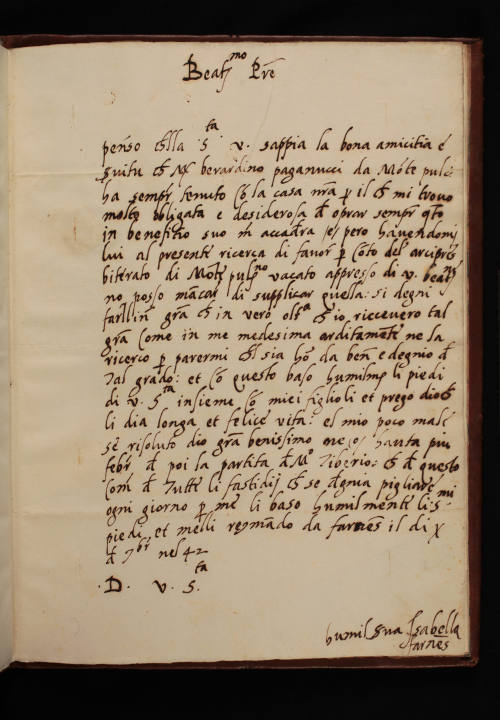 Beat.mo Prē
penso ch lla S.ta v. sappia la bona amicitia e
servitu ch M berardino paganucci da Mōte pulc
ha sempr tenuto cō la casa nrā p il ch mi trovo
molto obligata e desiderosa d oprar sempr qto
in benefitio suo m accadra pero havendomi
lui al presente ricerca di favor p cōto del arcipres
biterato di Mōte pulc.no vacato appresso di v. beat.ne
no posso mācar di supplicar quella: si degni
farllin grā ch in vero olt.a ch io ricevero tal
grā come in me medesima arditamēte ne la
ricerco p parermi ch sia hō da ben e degnio d
Tal grado: et cō questo baso humilm li piedi
di v. S.ta insieme cō miei figlioli et prego dio ch
li dia longa et felice vita: el mio poco mal
sē risoluto dio grā benissimo ne ho hauta piu
febr d poi la partita d M.o Tiberio: ch d questo
com d Tutte li fastidij ch se degnia pigliare
ogni giorno p me li baso humilmente li S.mi
piedi, et me li recmādo da farnes il di x
d 7.br nel 42
.D. v. S.ta
humil Sua Isabella
farnes